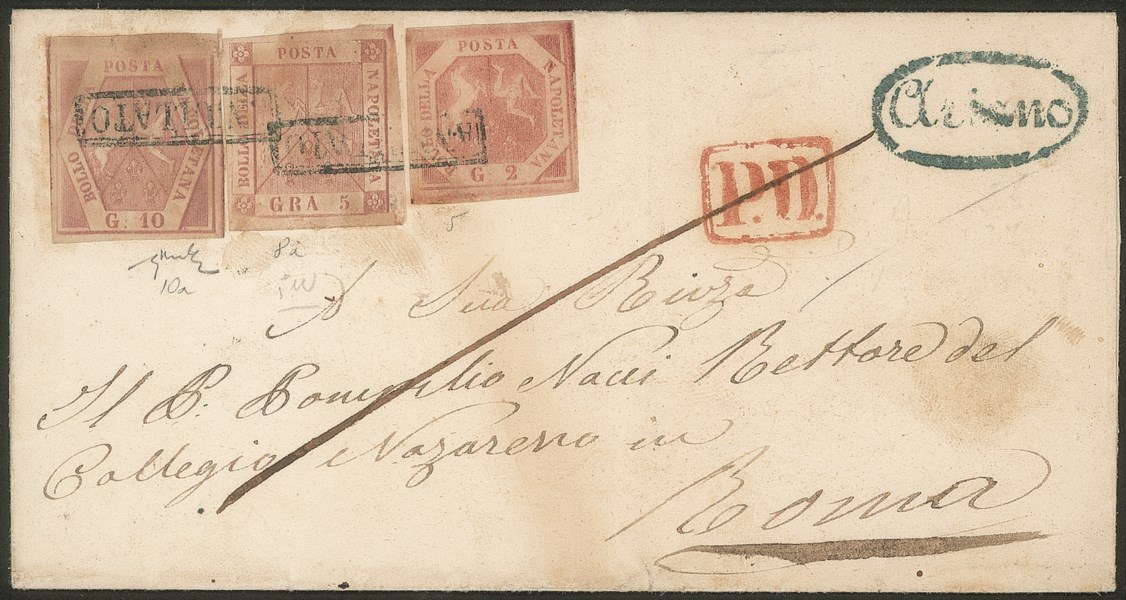 POSTA
BOLLO DELLA
NAPOLETANA
G. 10
POSTA
BOLLO DELLA
NAPOLETANA
GRA 5
POSTA
BOLLO DELLA
NAPOLETANA
G 2
ANNULLATO
ANNULLATO
Ariano
P.D.
10a
8a
5
A Sua Rivza
Il P. Pompilio Nocci Rettore del
Collegio Nazareno in
Roma